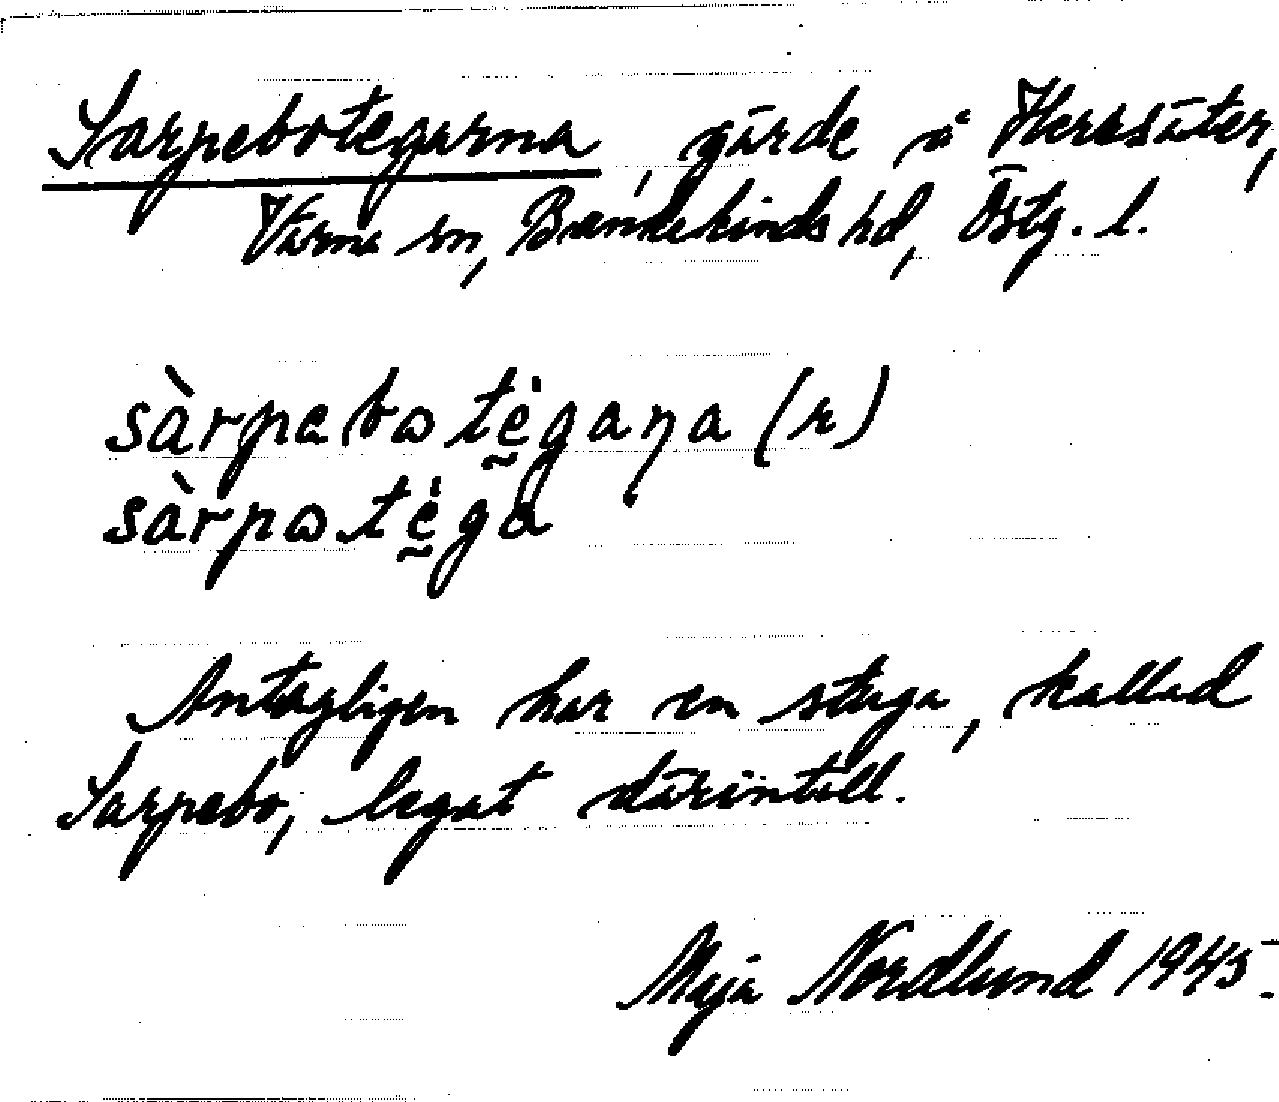 Sarpebotegarna, gärde å Herrsäter,
Värna sn, Bankekinds hd, Östg. l.
sàrpebωtḛ̀gaɳa (r)
sàrpωtḛ̀ga
Antagligen har en stuga, kallad
Sarpebo, legat därintill.
Maja Nordlund 1945.